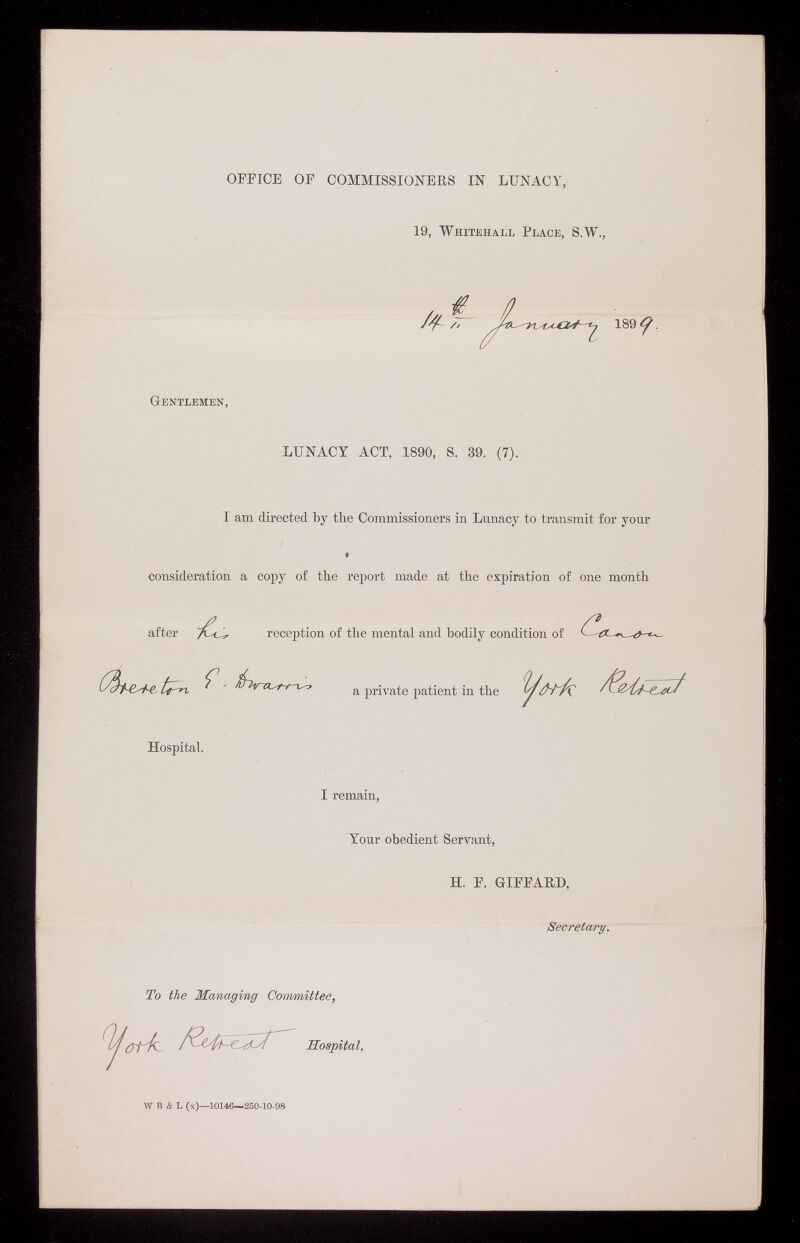 OFFICE OF COMMISSIONERS IN LUNACY,
19, WHITEHALL PLACE, S.W.,
14th January 1899.
GENTLEMEN,
LUNACY ACT, 1890, S. 39. (7).
I am directed by the Commissioners in Lunacy to transmit for your
consideration a copy of the report made at the expiration of one month
after his reception of the mental and bodily condition of Canon
Brereton E. Dwarris a private patient in the York Retreat
Hospital.
I remain,
Your obedient Servant,
H. F. GIFFARD,
Secretary.
To the Managing Committee,
York Retreat Hospital.
W B & L (x)—10146—250-10-98